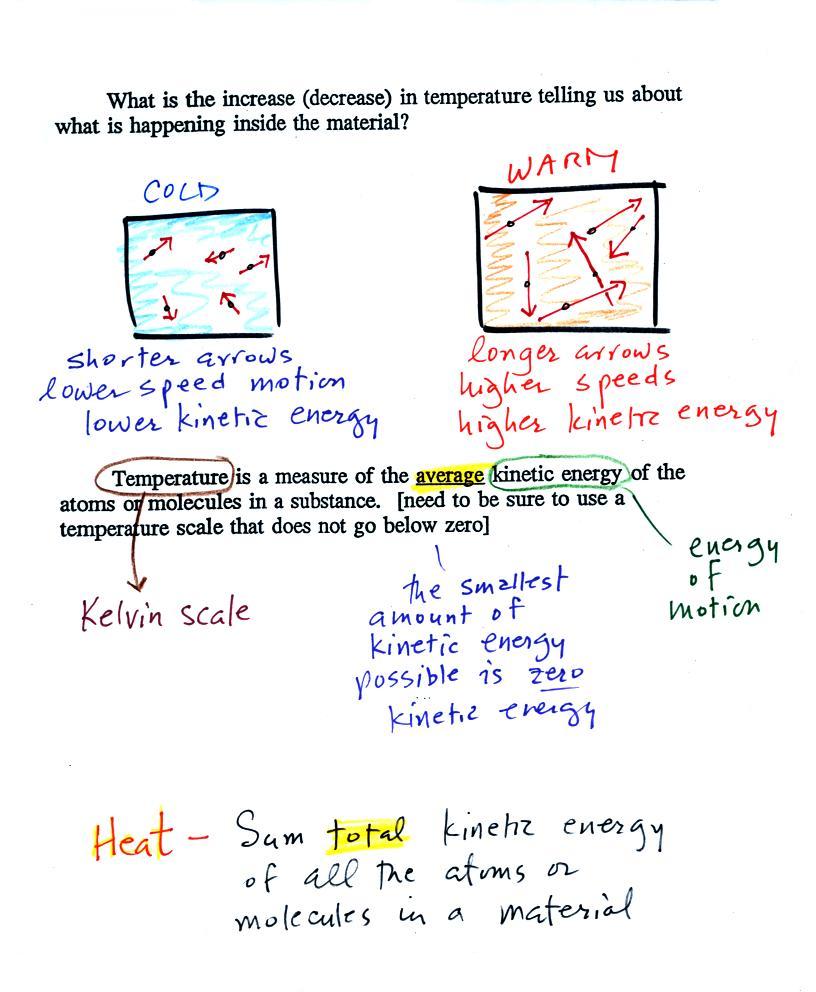 What is the increase (decrease) in temperature telling us about
what is happening inside the material?
COLD
WARM
shorter arrows
lower speed motion
lower kinetic energy
longer arrows
higher speeds
higher kinetic energy
Temperature is a measure of the average kinetic energy of the
atoms or molecules in a substance. [need to be sure to use a
temperature scale that does not go below zero]
Kelvin scale
the smallest
amount of
kinetic energy
possible is zero
kinetic energy
energy
of
motion
Heat - Sum total kinetic energy
of all the atoms or
molecules in a material